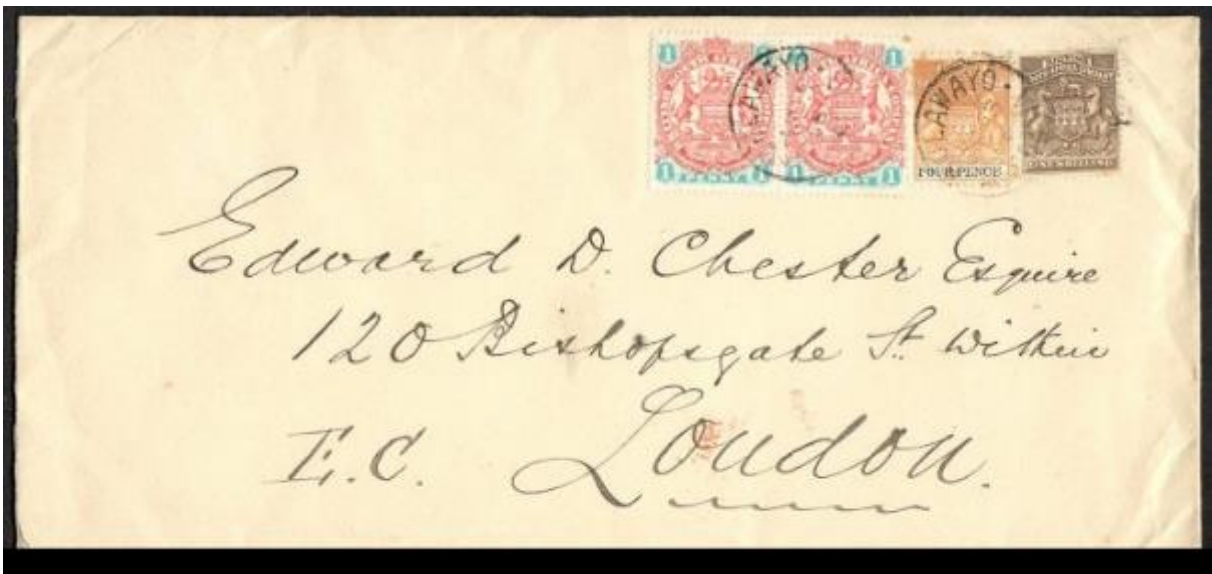 1 1
LAWAYO LAWAYO
FOUR PENCE
1 1
Edward D. Chester Esquire
120 Bishopsgate St. Within
E.C. London.